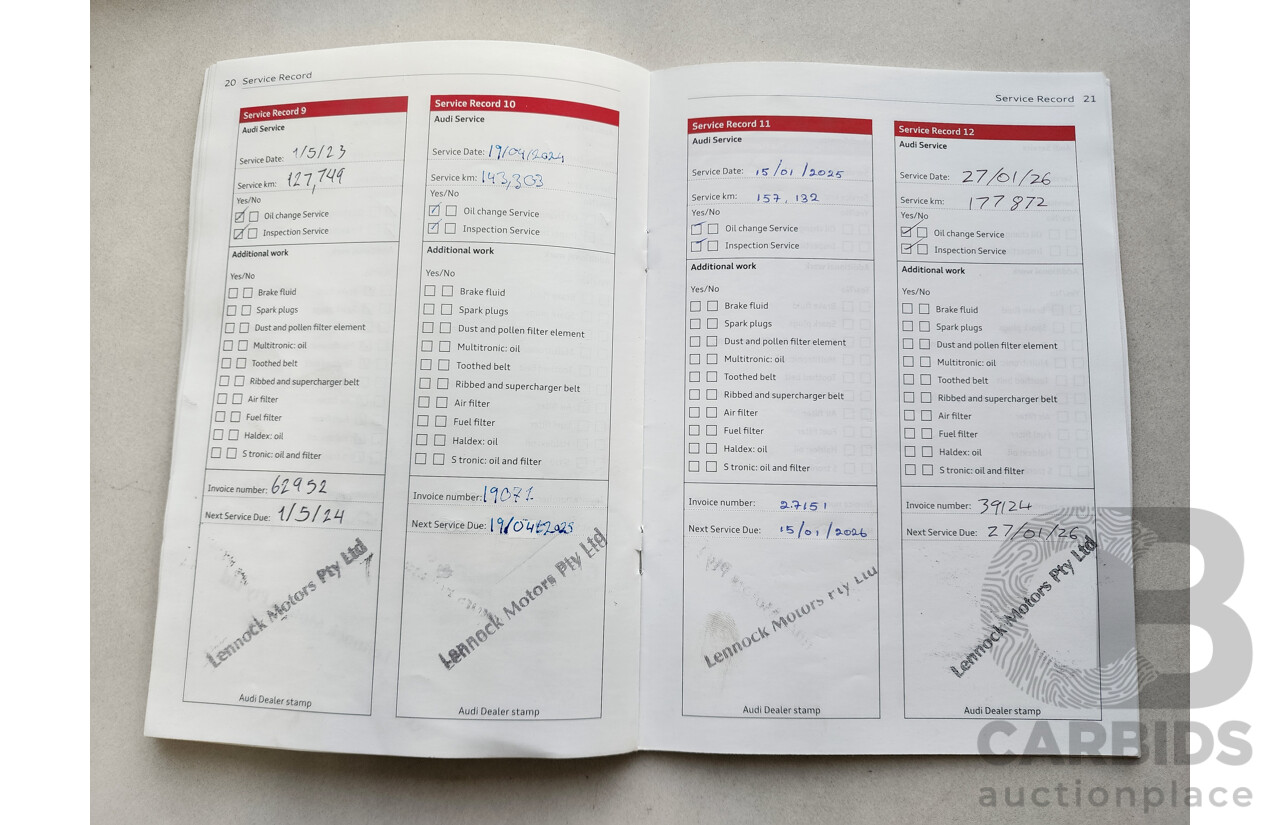 20 Service Record
Service Record 9
Audi Service
Service Date: 1/5/23
Service km: 127,749
Yes/No
Oil change Service
Inspection Service
Additional work
Yes/No
Brake fluid
Spark plugs
Dust and pollen filter element
Multitronic: oil
Toothed belt
Ribbed and supercharger belt
Air filter
Fuel filter
Haldex: oil
S tronic: oil and filter
Invoice number: 62952
Next Service Due: 1/5/24
Lennock Motors Pty Ltd
Audi Dealer stamp
Service Record 10
Audi Service
Service Date: 19/04/2024
Service km: 143,303
Yes/No
Oil change Service
Inspection Service
Additional work
Yes/No
Brake fluid
Spark plugs
Dust and pollen filter element
Multitronic: oil
Toothed belt
Ribbed and supercharger belt
Air filter
Fuel filter
Haldex: oil
S tronic: oil and filter
Invoice number: 19071
Next Service Due: 19/04/2025
Lennock Motors Pty Ltd
Audi Dealer stamp
Service Record 21
Service Record 11
Audi Service
Service Date: 15/01/2025
Service km: 157,132
Yes/No
Oil change Service
Inspection Service
Additional work
Yes/No
Brake fluid
Spark plugs
Dust and pollen filter element
Multitronic: oil
Toothed belt
Ribbed and supercharger belt
Air filter
Fuel filter
Haldex: oil
S tronic: oil and filter
Invoice number: 27151
Next Service Due: 15/01/2026
Lennock Motors Pty Ltd
Audi Dealer stamp
Service Record 12
Audi Service
Service Date: 27/01/26
Service km: 177872
Yes/No
Oil change Service
Inspection Service
Additional work
Yes/No
Brake fluid
Spark plugs
Dust and pollen filter element
Multitronic: oil
Toothed belt
Ribbed and supercharger belt
Air filter
Fuel filter
Haldex: oil
S tronic: oil and filter
Invoice number: 39124
Next Service Due: 27/01/26
Lennock Motors Pty Ltd
Audi Dealer stamp
CARBIDS
auctionplace